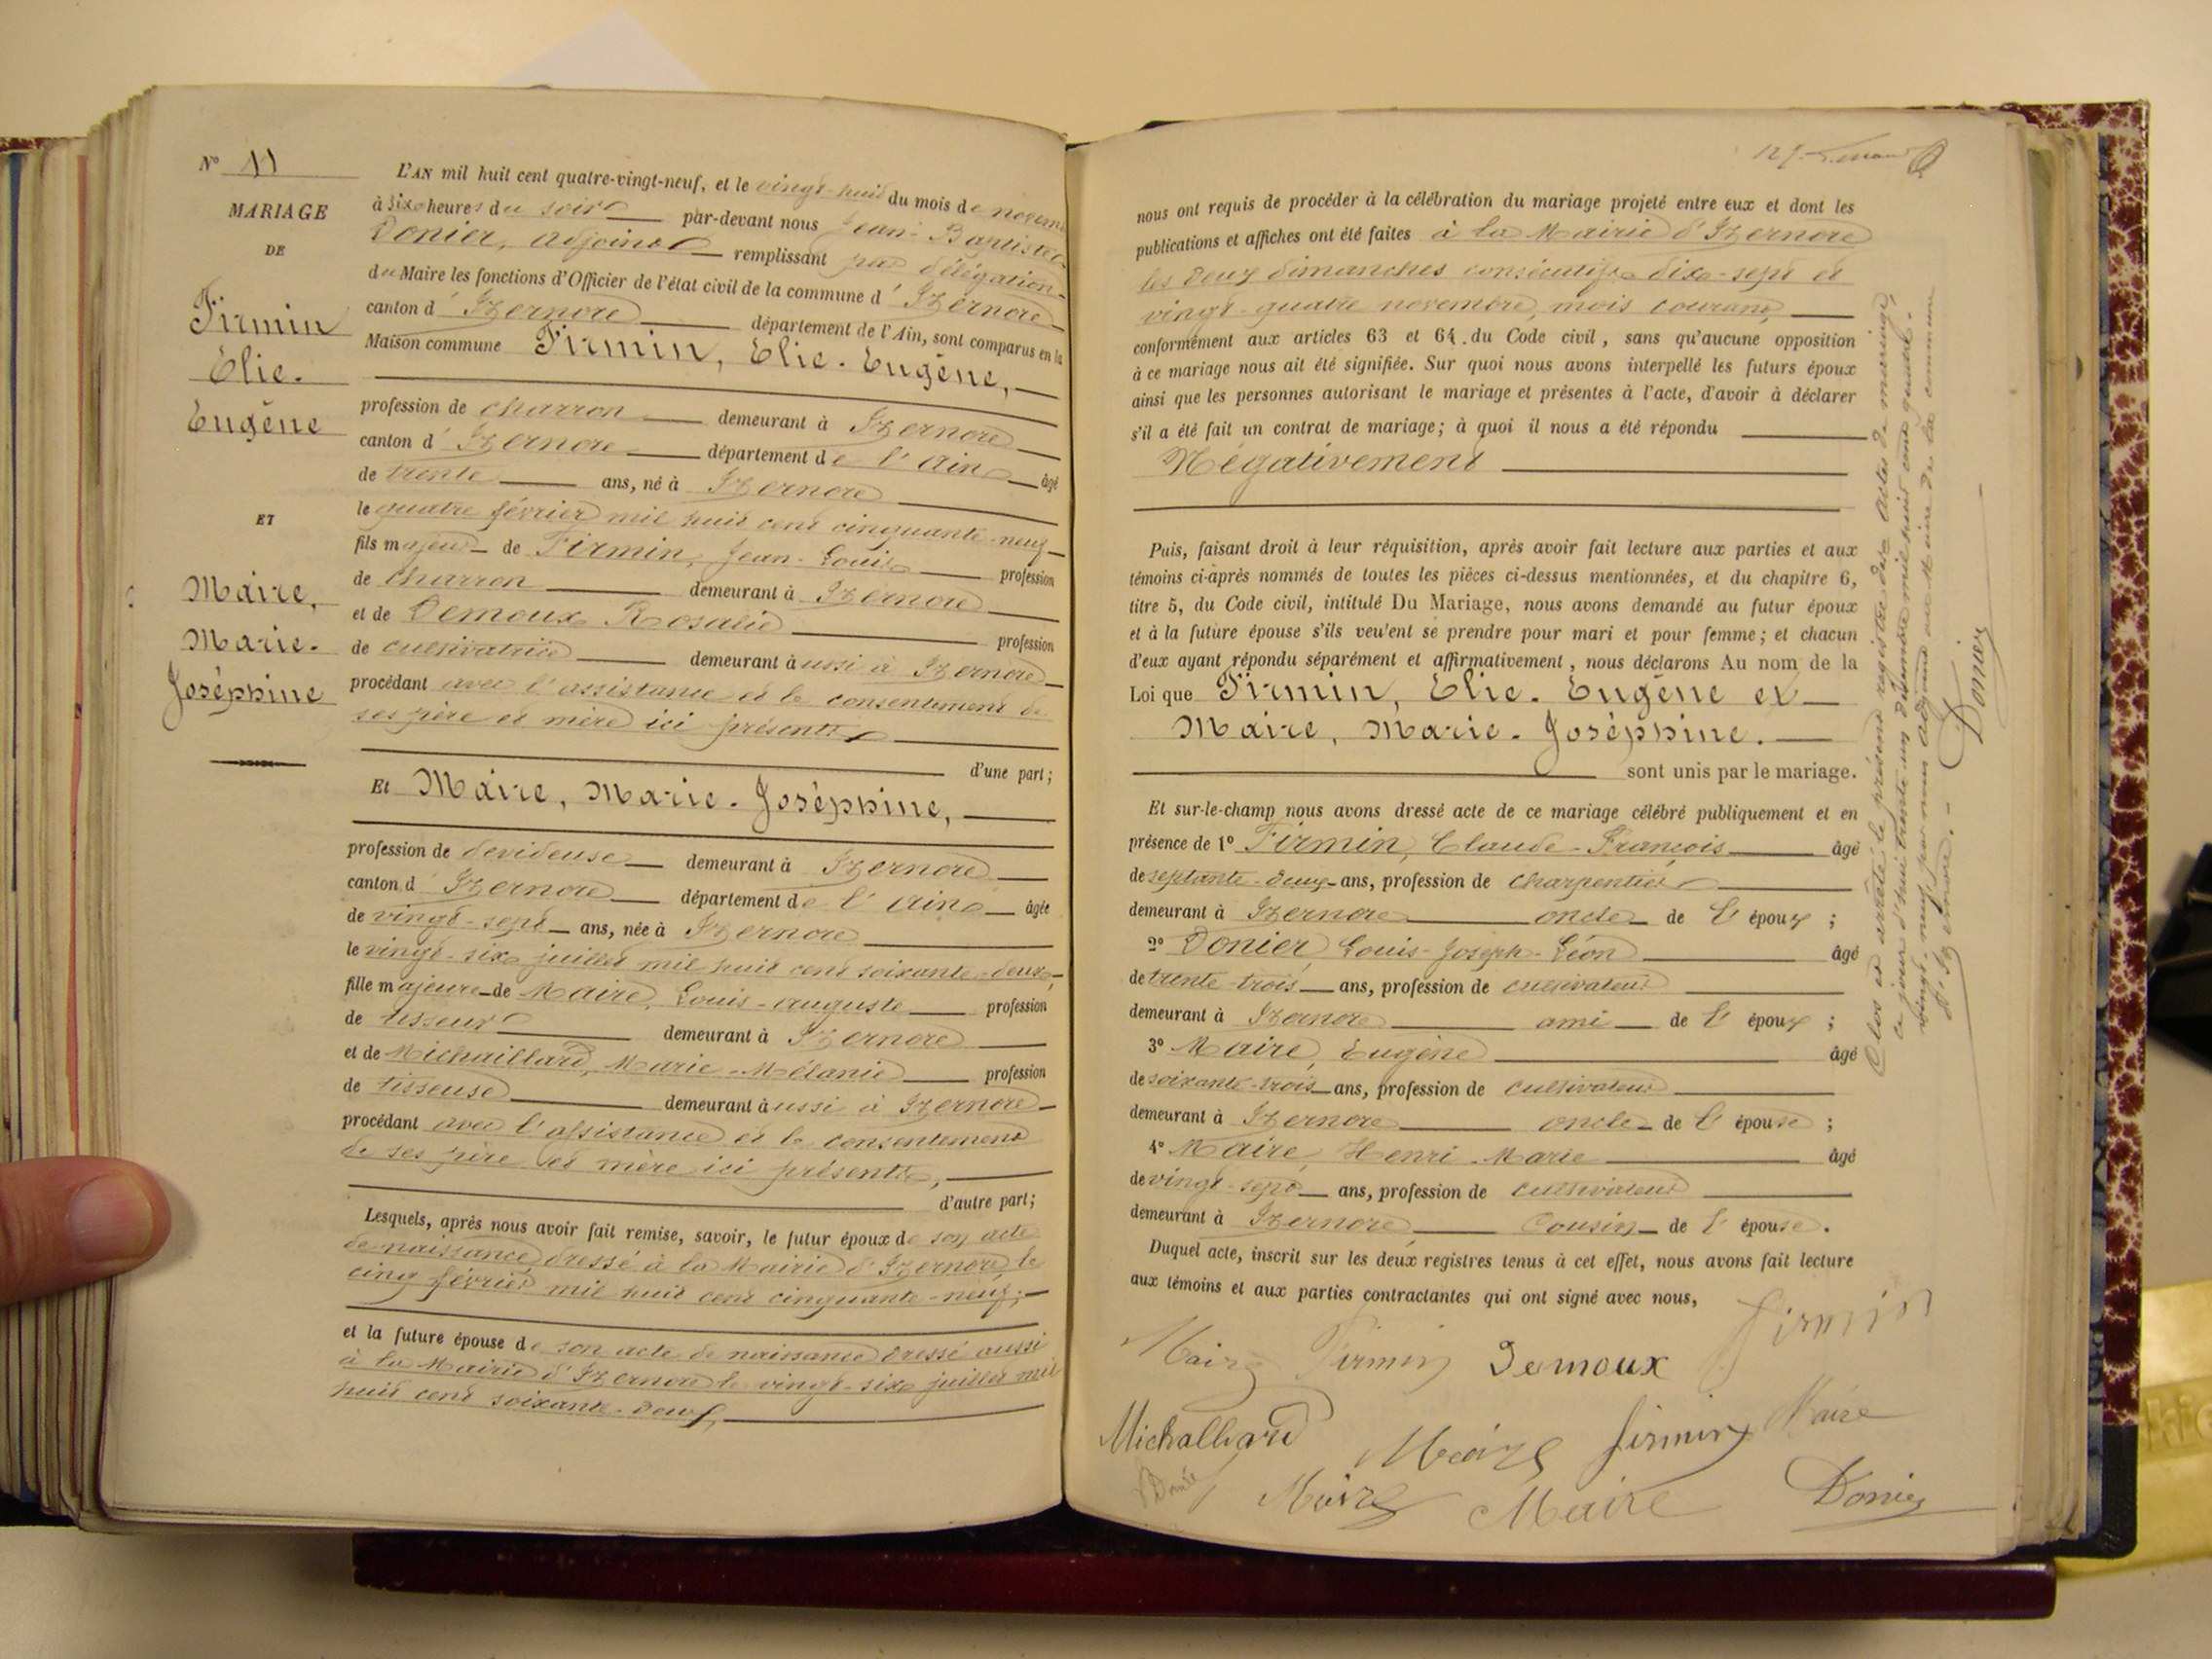 N° 11
MARIAGE
DE
Firmin
Elie.
Eugène
ET
Maire,
Marie.
Joséphine
L'AN mil huit cent quatre-vingt-neuf, et le vingt-huit du mois de novem
à six heures du soir par-devant nous Jean-Baptiste
Donier, adjoint remplissant par délégation
du Maire les fonctions d'Officier de l'état civil de la commune d'Izernore
canton d'Izernore département de l'Ain, sont comparus en la
Maison commune Firmin, Elie. Eugène,
profession de charron demeurant à Izernore
canton d'Izernore département de l'Ain âgé
de trente ans, né à Izernore
le quatre février mil huit cent cinquante-neuf
fils majeur de Firmin, Jean-Louis profession
de charron demeurant à Izernore
et de Demoux Rosalie profession
de cultivatrice demeurant aussi à Izernore
procédant avec l'assistance et le consentement de
ses père et mère ici présents
d'une part;
Et Maire, Marie. Joséphine,
profession de devideuse demeurant à Izernore
canton d'Izernore département de l'Ain âgée
de vingt-sept ans, née à Izernore
le vingt-six juillet mil huit cent soixante-deux,
fille majeure de Maire, Louis-auguste profession
de tisseur demeurant à Izernore
et de Michaillard, Marie-Mélanie profession
de tisseuse demeurant aussi à Izernore
procédant avec l'assistance et le consentement
de ses père et mère ici présents,
d'autre part;
Lesquels, après nous avoir fait remise, savoir, le futur époux de son acte
de naissance dressé à la Mairie d'Izernore le
cinq février mil huit cent cinquante-neuf;
et la future épouse de son acte de naissance dressé aussi
à la Mairie d'Izernore le vingt-six juillet mil
huit cent soixante-deux,
nous ont requis de procéder à la célébration du mariage projeté entre eux et dont les
publications et affiches ont été faites à la Mairie d'Izernore
les deux dimanches consécutifs dix-sept et
vingt-quatre novembre, mois courant,
conformément aux articles 63 et 64 du Code civil, sans qu'aucune opposition
à ce mariage nous ait été signifiée. Sur quoi nous avons interpellé les futurs époux
ainsi que les personnes autorisant le mariage et présentes à l'acte, d'avoir à déclarer
s'il a été fait un contrat de mariage; à quoi il nous a été répondu
Négativement
Puis, faisant droit à leur réquisition, après avoir fait lecture aux parties et aux
témoins ci-après nommés de toutes les pièces ci-dessus mentionnées, et du chapitre 6,
titre 5, du Code civil, intitulé Du Mariage, nous avons demandé au futur époux
et à la future épouse s'ils veulent se prendre pour mari et pour femme; et chacun
d'eux ayant répondu séparément et affirmativement, nous déclarons Au nom de la
Loi que Firmin, Elie. Eugène et
Maire, Marie. Joséphine.
sont unis par le mariage.
Et sur-le-champ nous avons dressé acte de ce mariage célébré publiquement et en
présence de 1° Firmin, Claude-François âgé
de septante-deux ans, profession de charpentier
demeurant à Izernore oncle de l'époux;
2° Donier, Louis-Joseph-Léon âgé
de trente-trois ans, profession de cultivateur
demeurant à Izernore ami de l'époux;
3° Maire, Eugène âgé
de soixante-trois ans, profession de cultivateur
demeurant à Izernore oncle de l'épouse;
4° Maire, Henri-Marie âgé
de vingt-sept ans, profession de cultivateur
demeurant à Izernore Cousin de l'épouse.
Duquel acte, inscrit sur les deux registres tenus à cet effet, nous avons fait lecture
aux témoins et aux parties contractantes qui ont signé avec nous,
Firmin
Maire Firmin Demoux
Michalliard Maire firmin Maire
Maire Maire Donier
Clos et arrêté le présent registre des actes de mariage,
ce jour d'hui trente-un décembre mil huit cent quatre-
vingt-neuf par nous adjoint au Maire de la commune
d'Izernore.
Donier